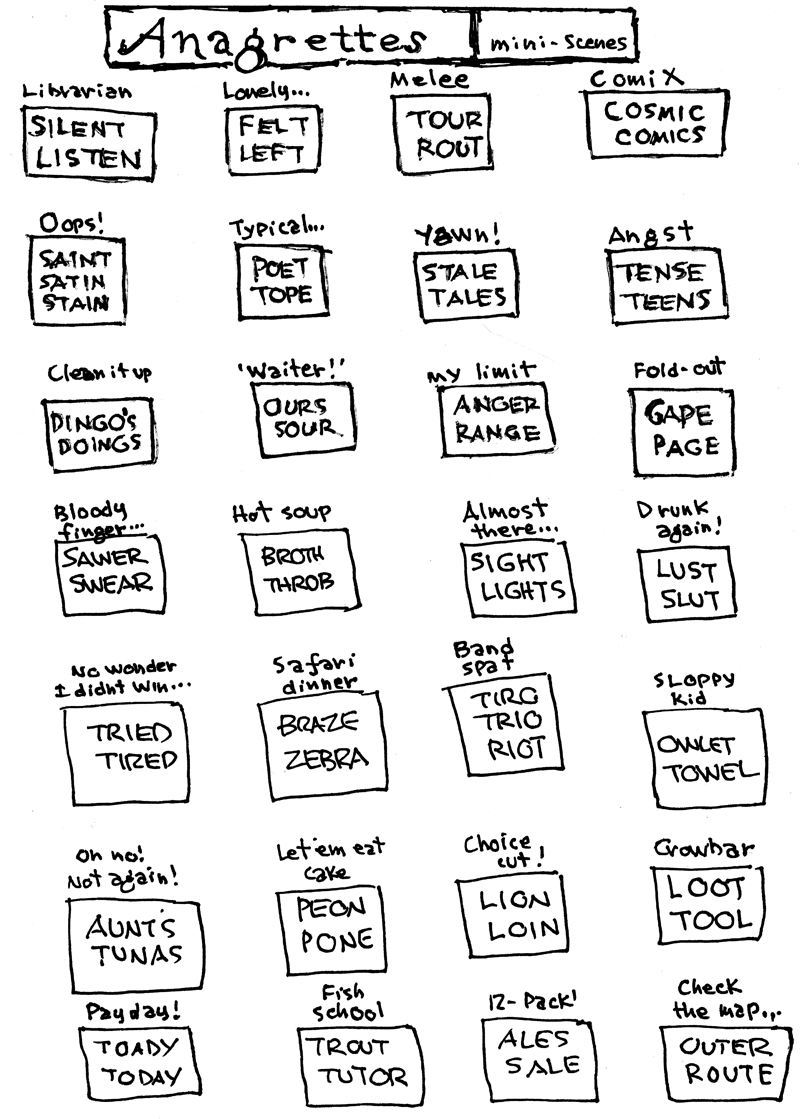 Anagrettes
mini-scenes
Librarian
SILENT
LISTEN
Lonely...
FELT
LEFT
Melee
TOUR
ROUT
ComiX
COSMIC
COMICS
Oops!
SAINT
SATIN
STAIN
Typical...
POET
TOPE
Yawn!
STALE
TALES
Angst
TENSE
TEENS
Clean it up
DINGO'S
DOINGS
'Waiter!'
OURS
SOUR
my limit
ANGER
RANGE
Fold-out
GAPE
PAGE
Bloody
finger...
SAWER
SWEAR
Hot soup
BROTH
THROB
Almost
there...
SIGHT
LIGHTS
Drunk
again!
LUST
SLUT
No wonder
I didnt win...
TRIED
TIRED
Safari
dinner
BRAZE
ZEBRA
Band
spat
TIRO
TRIO
RIOT
SLOPPY
kid
OWLET
TOWEL
Oh no!
Not again!
AUNT'S
TUNAS
Let'em eat
cake
PEON
PONE
Choice
cut!
LION
LOIN
Crowbar
LOOT
TOOL
Payday!
TOADY
TODAY
Fish
school
TROUT
TUTOR
12-Pack!
ALES
SALE
Check
the map...
OUTER
ROUTE